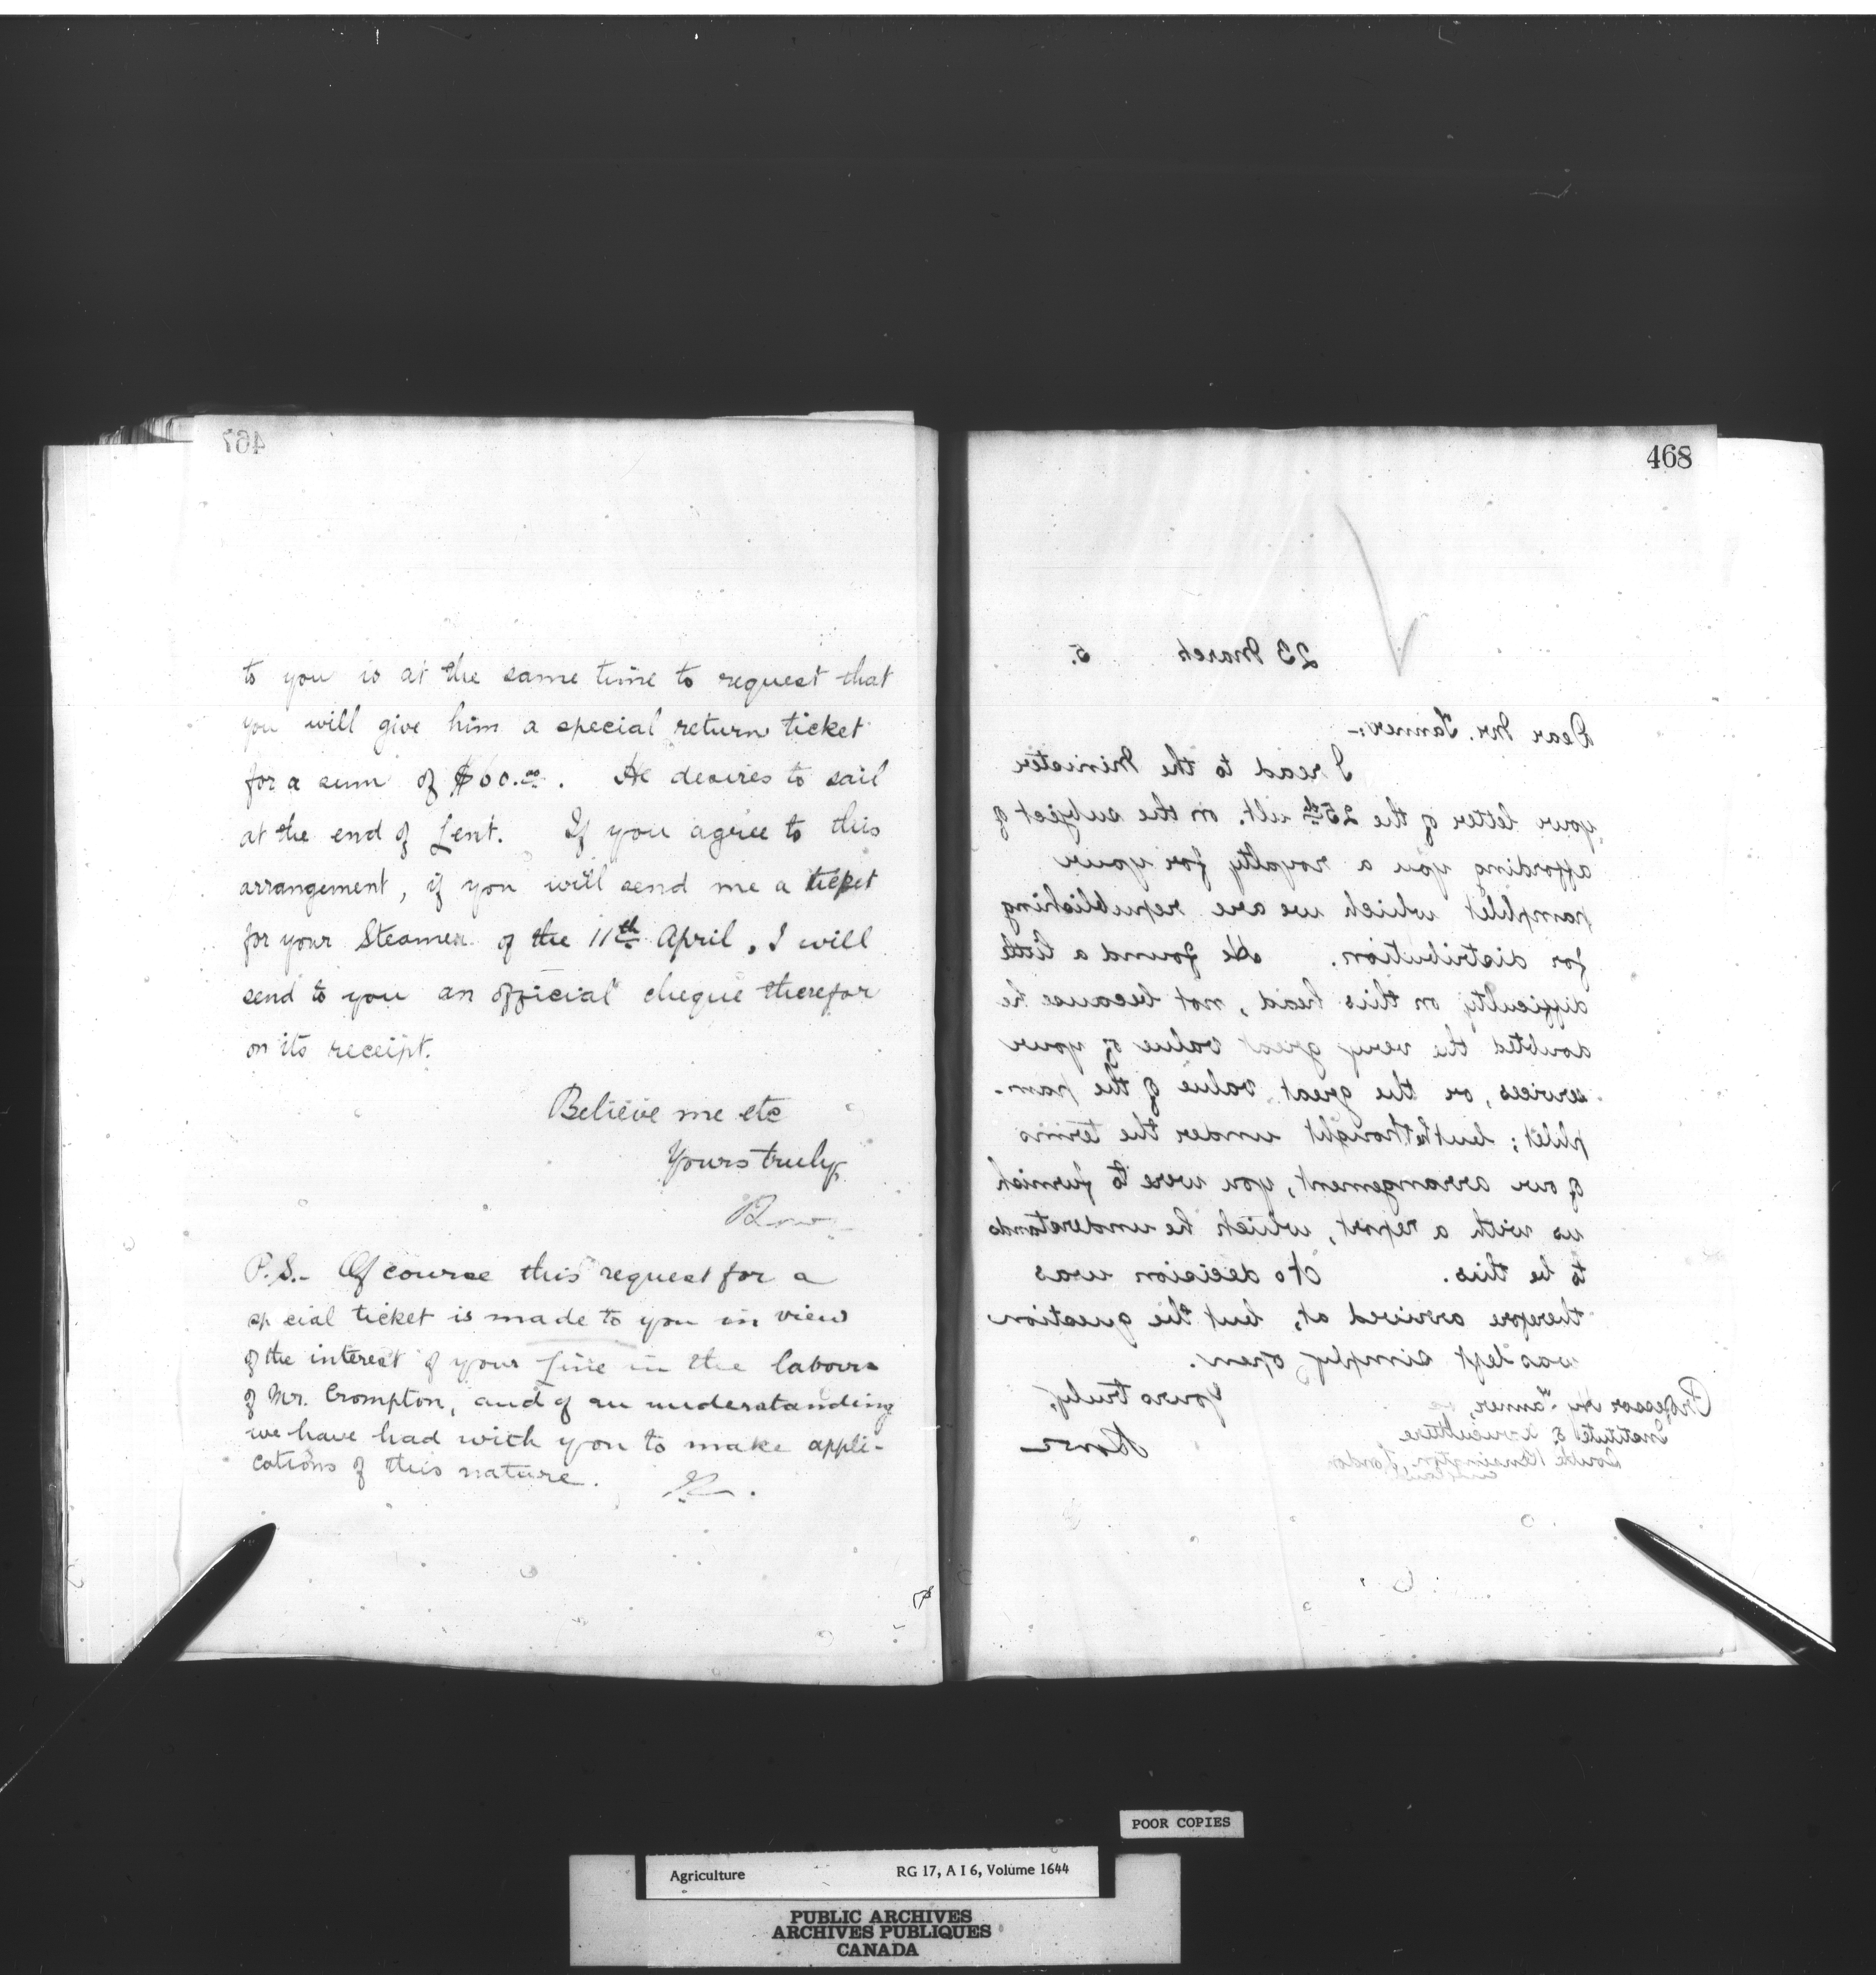 467
to you is at the same time to request that
you will give him a special return ticket
for a sum of $60.00. He desires to sail
at the end of Lent. If you agree to this
arrangement, if you will send me a ticket
for your Steamer of the 11th April, I will
send to you an official cheque therefor
on its receipt.
Believe me etc
Yours truly,
P.S.- Of course this request for a
special ticket is made to you in view
of the interest of your Line in the labours
of Mr. Crompton, and of an understanding
we have had with you to make appli-
cations of this nature.
468
23 March 5.
Dear Mr. Tanner:-
I read to the Minister
your letter of the 25th ult. on the subject of
affording you a royalty for your
pamphlet which we are republishing
for distribution. He found a little
difficulty on this head, not because he
doubted the very great value of your
services, or the great value of the pam-
phlet; but he thought under the terms
of our arrangement, you were to furnish
us with a report, which he understands
to be this. No decision was
therefore arrived at, but the question
was left simply open.
Yours truly,
Professor Hy Tanner,
Institute of Agriculture
South Kensington, London
England
POOR COPIES
Agriculture RG 17, A I 6, Volume 1644
PUBLIC ARCHIVES
ARCHIVES PUBLIQUES
CANADA